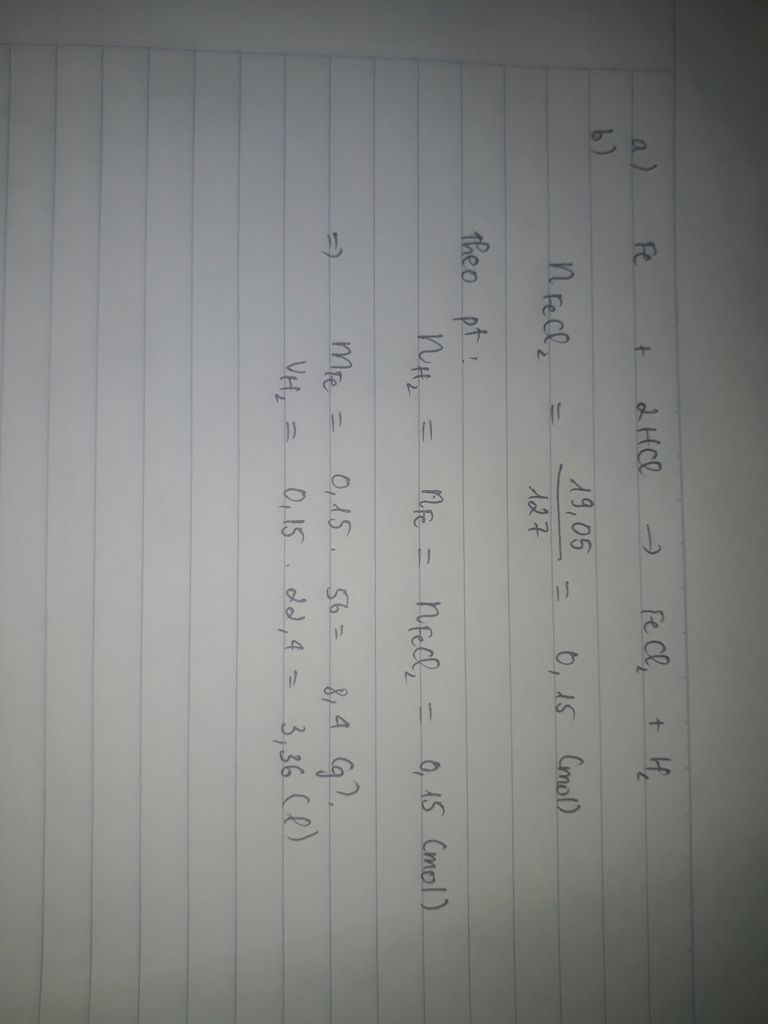 a) Fe + 2HCl → FeCl₂ + H₂
b)
nFeCl₂ = 19,05/127 = 0,15 (mol)
theo pt :
nH₂ = nFe = nFeCl₂ = 0,15 (mol)
=) mFe = 0,15 . 56 = 8,4 (g).
VH₂ = 0,15 . 22,4 = 3,36 (l)